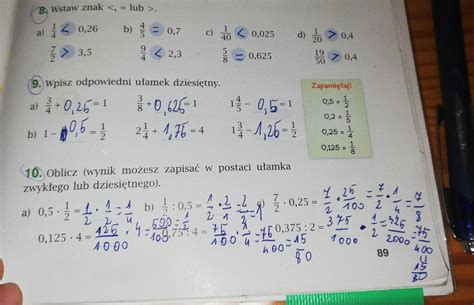 8. Wstaw znak <, = lub >.
a) 1/4 < 0,26 b) 4/5 = 0,7 c) 1/40 < 0,025 d) 1/20 > 0,4
7/2 > 3,5 9/4 < 2,3 5/8 = 0,625 19/50 > 0,4
9. Wpisz odpowiedni ułamek dziesiętny.
a) 3/4 + 0,25 = 1 3/8 + 0,625 = 1 1 4/5 - 0,5 = 1
b) 1 - 0,5 = 1/2 2 1/4 + 1,75 = 4 1 3/4 - 1,25 = 1/2
Zapamiętaj!
0,5 = 1/2
0,2 = 1/5
0,25 = 1/4
0,125 = 1/8
10. Oblicz (wynik możesz zapisać w postaci ułamka
zwykłego lub dziesiętnego).
a) 0,5 · 1/2 = 1/2 · 1/2 = 1/4 b) : 0,5 = 1/2 · 2/1 = 2/2 = 1 c) 7/2 · 0,25 = 7/2 · 25/100 = 7/2 · 1/4 = 7/8
0,125 · 4 = 125/1000 · 4 = 500/1000 = 1/2 0,75 : 4 = 75/100 · 1/4 = 75/400 = 15/80 0,375 : 2 = 375/1000 · 1/2 = 325/2000 = 75/400
15/80
89